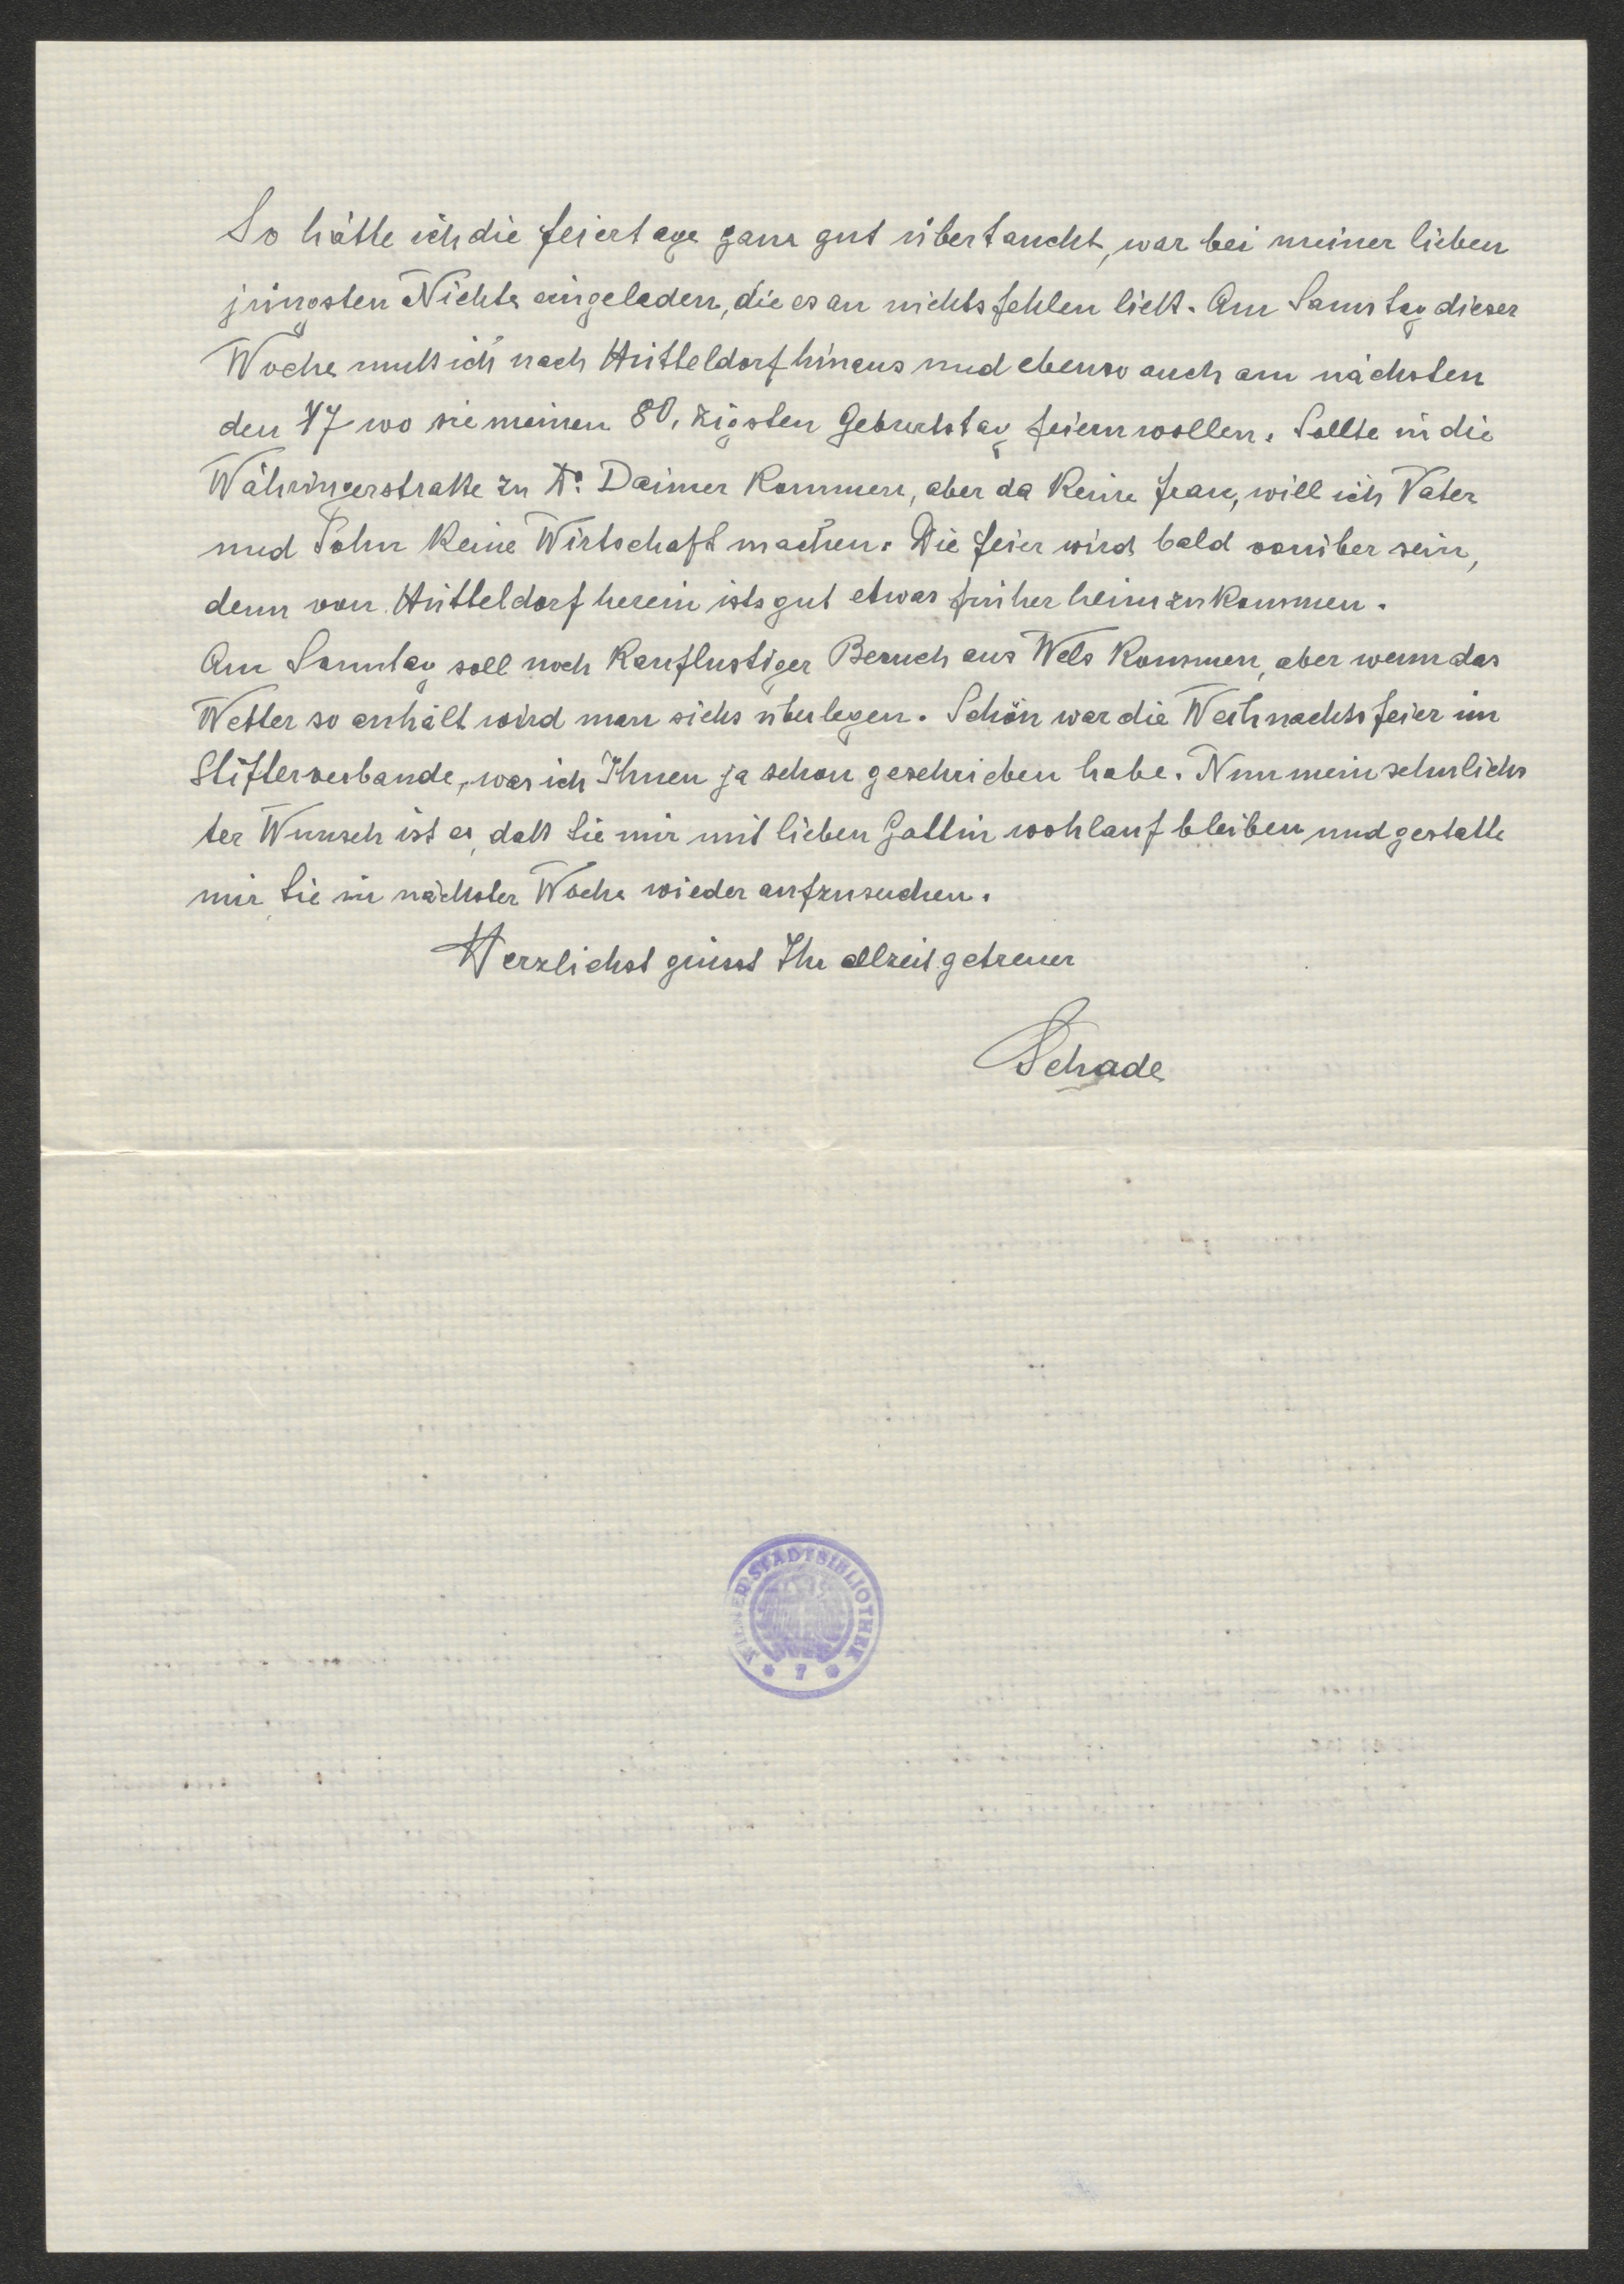 So hätte ich die Feiertage ganz gut übertaucht, war bei meiner lieben
jüngsten Nichte eingeladen, die es an nichts fehlen ließ. Am Samstag dieser
Woche muß ich nach Hütteldorf hinaus und ebenso auch am nächsten
den 17 wo sie meinen 80. zigsten Geburtstag feiern wollen. Sollte in die
Währingerstraße zu Dr. Daimer kommen, aber da keine Frau, will ich Vater
und Sohn keine Wirtschaft machen. Die Feier wird bald vorüber sein,
denn von Hütteldorf herein ists gut etwas früher heimzukommen.
Am Sonntag soll noch kauflustiger Besuch aus Wels kommen, aber wenn das
Wetter so anhält wird man sichs überlegen. Schön war die Weihnachtsfeier im
Stifterverbande, was ich Ihnen ja schon geschrieben habe. Nun mein sehnlichs
ter Wunsch ist es, daß Sie mir mit lieben Gattin wohlauf bleiben und gestatte
mir Sie in nächster Woche wieder aufzusuchen.
Herzlichst grüsst Ihr allzeit getreuer
Schade
WIENER STADTBIBLIOTHEK
* 7 *